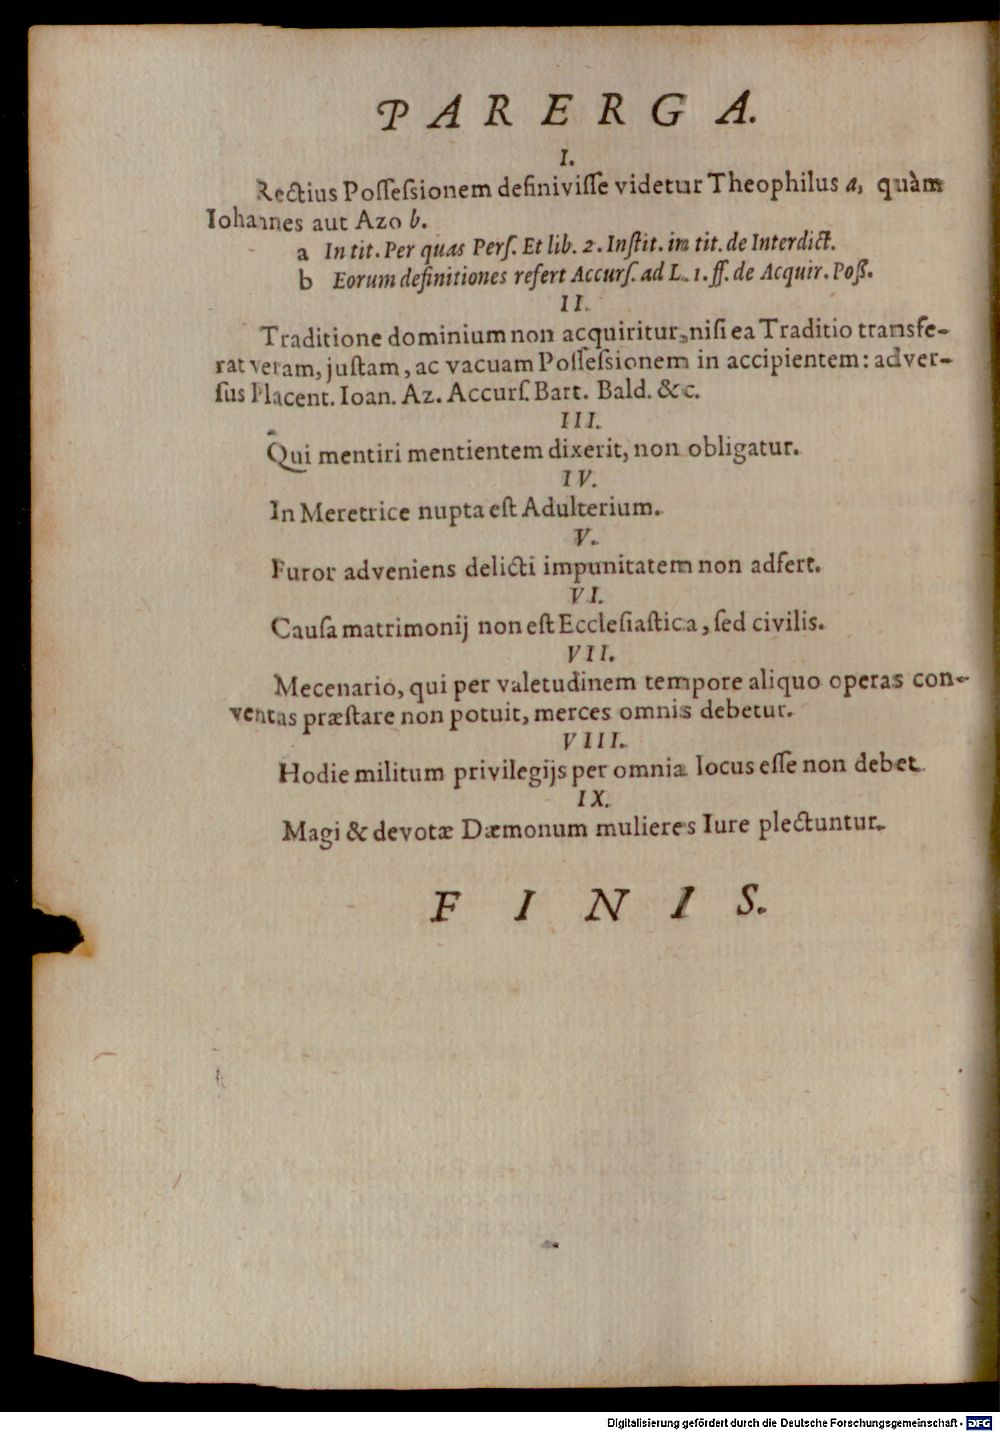 PARERGA.
I.
Rectius Possessionem definivisse videtur Theophilus a, quàm
Iohannes aut Azo b.
a In tit. Per quas Pers. Et lib. 2. Instit. in tit. de Interdict.
b Eorum definitiones refert Accurs. ad L. 1. ff. de Acquir. Poss.
II.
Traditione dominium non acquiritur, nisi ea Traditio transfe-
rat veram, justam, ac vacuam Possessionem in accipientem: adver-
sus Placent. Ioan. Az. Accurs. Bart. Bald. &c.
III.
Qui mentiri mentientem dixerit, non obligatur.
IV.
In Meretrice nupta est Adulterium.
V.
Furor adveniens delicti impunitatem non adfert.
VI.
Causa matrimonij non est Ecclesiastica, sed civilis.
VII.
Mecenario, qui per valetudinem tempore aliquo operas con-
ventas præstare non potuit, merces omnis debetur.
VIII.
Hodie militum privilegijs per omnia locus esse non debet.
IX.
Magi & devotæ Dæmonum mulieres Iure plectuntur.
FINIS.
Digitalisierung gefördert durch die Deutsche Forschungsgemeinschaft - DFG